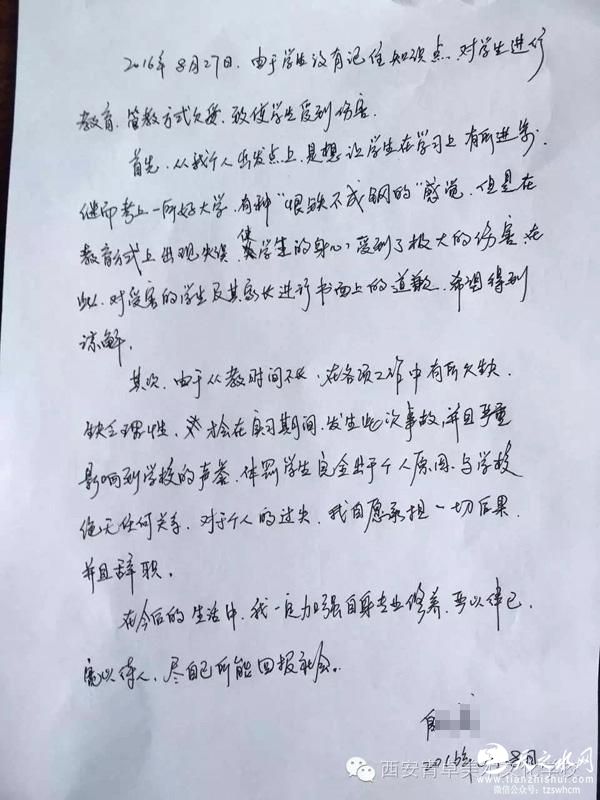 2016年8月27日，由于学生没有记住知识点，对学生进行
教育，管教方式欠妥，致使学生受到伤害。
首先，从我个人出发点上，是想让学生在学习上有所进步，
继而考上一所好大学，有种“恨铁不成钢的”感觉，但是在
教育方式上出现失误，使学生的身心受到了极大的伤害，在
此，对受害的学生及其家长进行书面上的道歉，希望得到
谅解。
其次，由于从教时间不长，在各项工作中有所欠缺，
缺乏理性，才会在实习期间，发生此次事故，并且严重
影响到学校的声誉，体罚学生完全出于个人原因，与学校
绝无任何关系，对于个人的过失，我自愿承担一切后果，
并且辞职。
在今后的生活中，我一定加强自身专业修养，严以律己，
宽以待人，尽自己所能回报社会。
2016年8月
西安青卓美
学校
天之水网
www.tianzhishui.com
微信公众号：tzswhcm